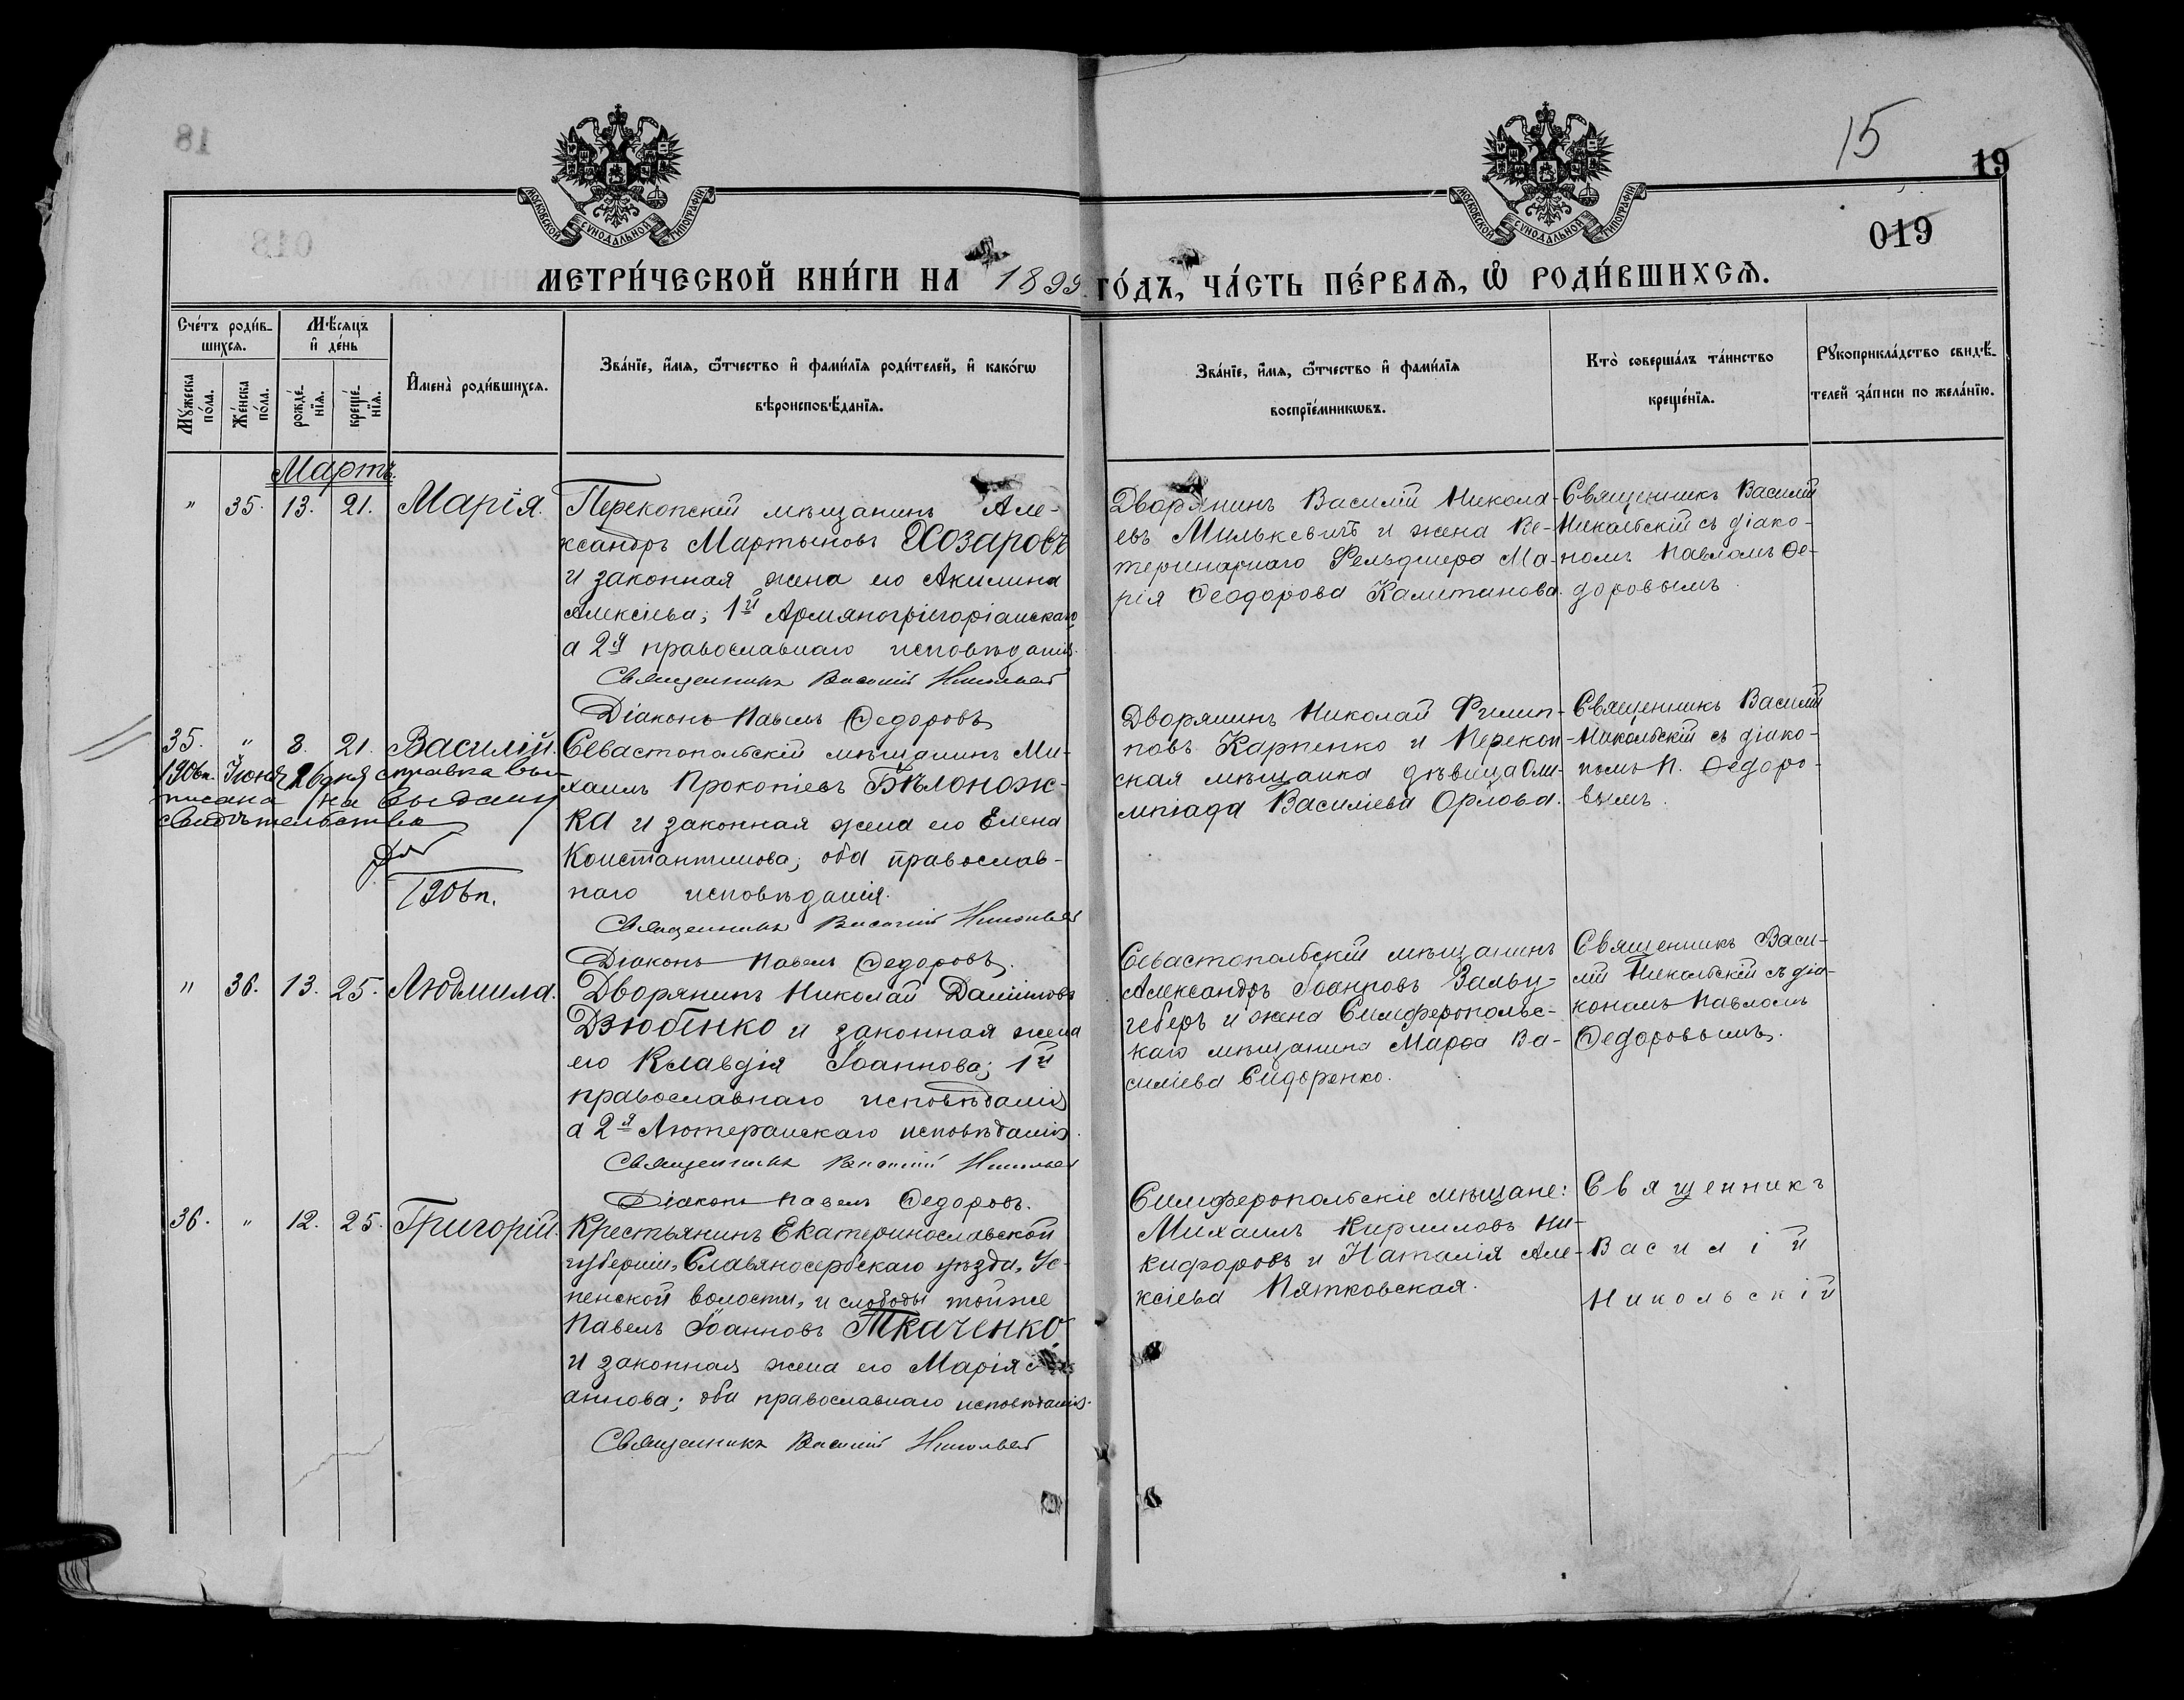 15
19
019
МОСКОВСКОЙ СѴНОДАЛЬНОЙ ТИПОГРАФІИ
МОСКОВСКОЙ СѴНОДАЛЬНОЙ ТИПОГРАФІИ
МЕТРИ́ЧЕСКОЙ КНИ́ГИ НА 1899 ГО́ДЪ, ЧА́СТЬ ПЕ́РВАѦ, Ѽ РОДИ́ВШИХСѦ.
Сче́тъ роди́в-
шихсѧ.
Мꙋжеска по́ла.
Же́нска по́ла.
Мѣ́сѧцъ
и҆ де́нь
рожде́-нїѧ.
креще́-нїѧ.
И҆мена̀ роди́вшихсѧ.
Зва́нїе, и҆́мѧ, ѻ҆́тчество и҆ фами́лїѧ роди́телей, и҆ како́гѡ
вѣроисповѣ́данїѧ.
Зва́нїе, и҆́мѧ, ѻ҆́тчество и҆ фами́лїѧ
воспрїе́мникѡвъ.
Кто̀ соверша́лъ та́инство
креще́нїѧ.
Рꙋкоприкла́дство свидѣ́-
телей за́писи по жела́нїю.
Мартъ.
" 35. 13. 21. Марія.
Перекопскій мѣщанинъ Але-
ксандръ Мартыновъ Хозаровъ
и законная жена его Акилина
Алексіева; 1й Армяногригоріанскаго,
а 2я православнаго исповѣданія.
Священникъ Василій Никольскій
Діаконъ Павелъ Ѳедоровъ
Дворянинъ Василій Никола-
евъ Милькевичъ и жена Ве-
теринарнаго Фельдшера Ма-
рія Ѳеодорова Калитанова.
Священникъ Василій
Никольскій съ діако-
номъ Павломъ Ѳе-
доровымъ.
35. " 8. 21. Василій.
190бп. Іюня 26 дня справка вы-
писана на выдачу
свидѣтельства
190бп.
Севастопольскій мѣщанинъ Ми-
хаилъ Прокопіевъ Бѣлонож-
ка и законная жена его Елена
Константинова; оба православ-
наго исповѣданія.
Священникъ Василій Никольскій
Діаконъ Павелъ Ѳедоровъ.
Дворянинъ Николай Филип-
повъ Карпенко и Перекоп-
ская мѣщанка дѣвица Оли-
мпіада Василіева Орлова.
Священникъ Василій
Никольскій съ діако-
номъ П. Ѳедоро-
вымъ.
" 36. 13. 25. Людмила.
Дворянинъ Николай Даніиловъ
Дзюбенко и законная жена
его Клавдія Іоаннова; 1й
православнаго исповѣданія
а 2я Лютеранскаго исповѣданія.
Священникъ Василій Никольскій
Діаконъ Павелъ Ѳедоровъ.
Севастопольскій мѣщанинъ
Александръ Іоанновъ Зальц-
геберъ и жена Симферопольс-
каго мѣщанина Марѳа Ва-
силіева Сидоренко.
Священникъ Васи-
лій Никольскій съ діа-
кономъ Павломъ
Ѳедоровымъ.
36. " 12. 25. Григорій.
Крестьянинъ Екатеринославской
губерніи, Славяносербскаго уѣзда, Ус-
пенской волости, и слободы тойже
Павелъ Іоанновъ Ткаченко
и законная жена его Марія
аннова; оба православнаго исповѣданія.
Священникъ Василій Никольскій
Симферопольскіе мѣщане:
Михаилъ Кирилловъ Ни-
кифоровъ и Наталія Але-
ксіева Пятковская.
Священникъ
Василій
Никольскій